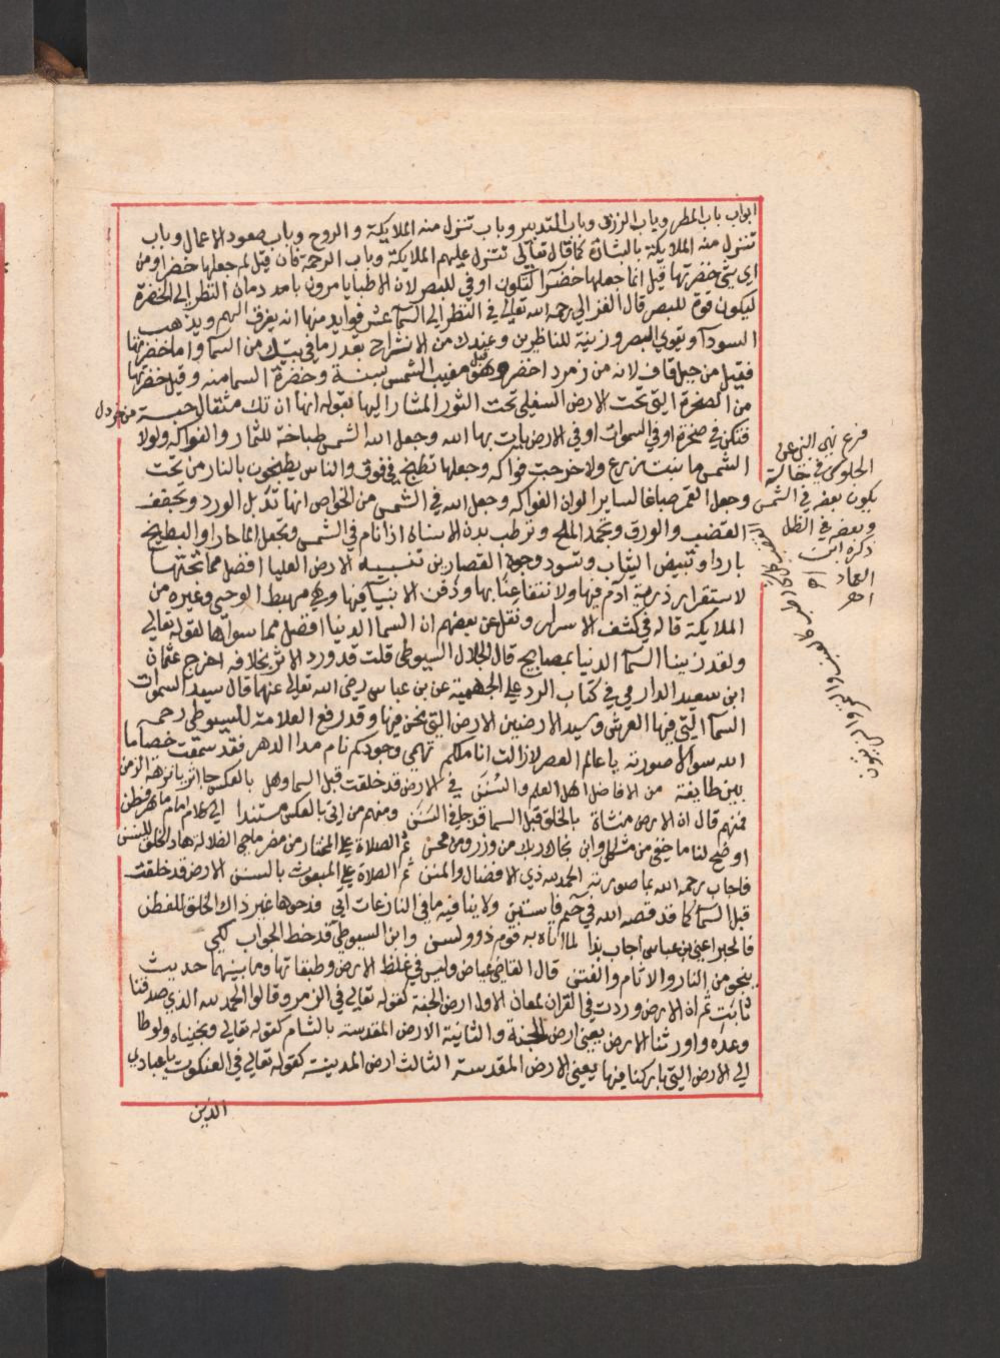 ابواب باب المطر وباب الرزق وباب التدبير وباب تنزل منه الملايكة والروح وباب صعود الاعمال وباب
تنزل منه الملايكة بالبشارة كما قال تعالى تتنزل عليهم الملايكة وباب الرحمة فان قيل لم جعلها خضرا ومن
اي شي خضرتها قيل انما جعلها خضرا لتكون اوفق للبصر لان الاطبا يامرون بامد دمان النظر الى الخضرة
ليكون قوة للبصر قال الغزالي رحمه الله تعالى في النظر الى السما عشر فوايد منها انه يفرق الهم ويذهب
السودا ويقوي البصر وزينة للناظرين وعندك من الانشراح بقدر ما في بيتك من السما واما خضرتها
فقيل من جبل قاف لانه من زمرد اخضر وهو قبل مغيب الشمس بسنة وخضرة السما منه وقيل خضرتها
من الصخرة التي تحت الارض السفلى تحت الثور المشار اليها بقوله انها ان تك مثقال حبة من خردل
فتكن في صخرة او في السموات او في الارض يات بها الله وجعل الله الشمس طباخة للثمار والفواكه ولولا
الشمس ما نبت زرع ولا خرجت فواكه وجعلها تطبخ في فوق والناس يطبخون بالنار من تحت
وجعل القمر صباغا لساير الوان الفواكه وجعل الله في الشمس من الخواص انها تذبل الورد وتجفف
القضيب والورق وتجمد الملح وترطب بدن الانسان اذا نام في الشمس وتجعل الما حارا والبطيخ
باردا وتبيض الثياب وتسود وجوه القصارين تنبيه الارض العليا افضل مما تحتها
لاستقرار ذرية آدم فيها ولانتفاعنا بها ودفن الانبيا فيها وهي مهبط الوحي وغيره من
الملايكة قاله في كشف الاسرار ونقل عن بعضهم ان السما الدنيا افضل مما سواها لقوله تعالى
ولقد زينا السما الدنيا بمصابيح قال الجلال السيوطي قلت قد ورد الاثر بخلافه اخرج عثمان
ابن سعيد الدارمي في كتاب الرد على الجهمية عن بن عباس رضي الله تعالى عنهما قال سيد السموات
السما التي فيها العرش وسيد الارضين الارض التي نحن فيها وقد رفع العلامة للسيوطي رحمه
الله سوالا صورته يا عالم العصر لازالت اناملكم تهمي وجودكم نام مدا الدهر فقد سمعت خصاما
بين طايفة من الافاضل اهل العلم والسنن في الارض قد خلقت قبل السما وهل بالعكس جا اثر يا نزهة الزمن
فمنهم قال ان الارض منشاة بالخلق قبل السما قد جا في السنن ومنهم من اتى بالعكس مستندا الى كلام امام ماهر فطن
اوضح لنا ما خفي من مشكل وابن نجاك ربك من وزر ومن محن ثم الصلاة على المختار من مضر ماحي الضلالة هاد الخلق للسنن
فاجاب رحمه الله بما صورته الحمد لله ذي الافضال والمنن ثم الصلاة على المبعوث بالسنن الارض قد خلقت
قبل السما كما قد قصه الله في حم فاستبن ولا ينافيه ما في النازعات اتى فدحوها غير ذاك الخلق للفطن
فالحبر اعني بن عباس اجاب بذا لما اتاه به قوم ذوو لسن وابن السيوطي قد خط الجواب لكي
ينجو من النار والاثام والفتن قال القاضي عياض وليس في غلظ الارض وطبقاتها وما بينهما حديث
ثابت ثم ان الارض وردت في القران لمعان الاول ارض الجنة كقوله تعالى في الزمر وقالوا الحمد لله الذي صدقنا
وعده واورثنا الارض يعني ارض الجنة والثانية الارض المقدسة بالشام كقوله تعالى ونجيناه ولوطا
الى الارض التي باركنا فيها يعني الارض المقدسة الثالث ارض المدينة كقوله تعالى في العنكبوت يا عبادي
الذين
فرع نهى النبي عن
الجلوس في حالة
يكون بعضه في الشمس
وبعضه في الظل
ذكره ابن
العماد
اهـ